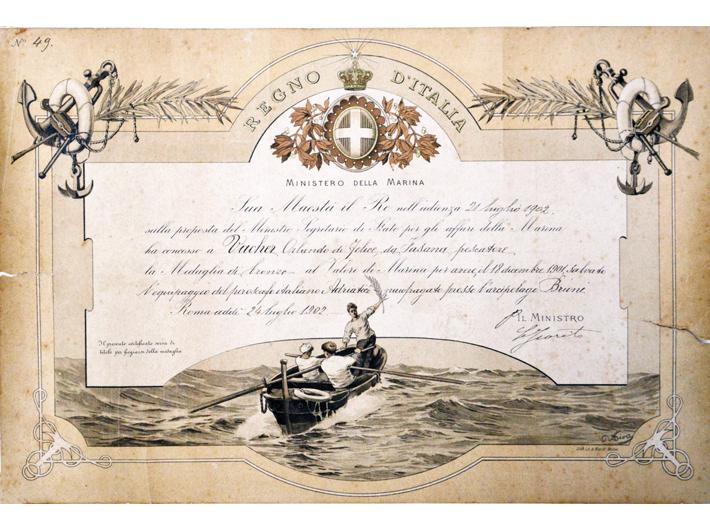 Nº 49.
REGNO D'ITALIA
MINISTERO DELLA MARINA
Sua Maestà il Re nell'udienza 21 luglio 1902
sulla proposta del Ministro Segretario di Stato per gli affari della Marina
ha concesso a Vucher Orlando di Felice, da Fasana, pescatore
la Medaglia di bronzo al Valore di Marina per avere, il 18 dicembre 1901 salvato
l'equipaggio del piroscafo italiano Adriatico naufragato presso l'arcipelago Brioni
Roma addì 24 luglio 1902
IL MINISTRO
Il presente certificato serve di
titolo per fregiarsi della medaglia